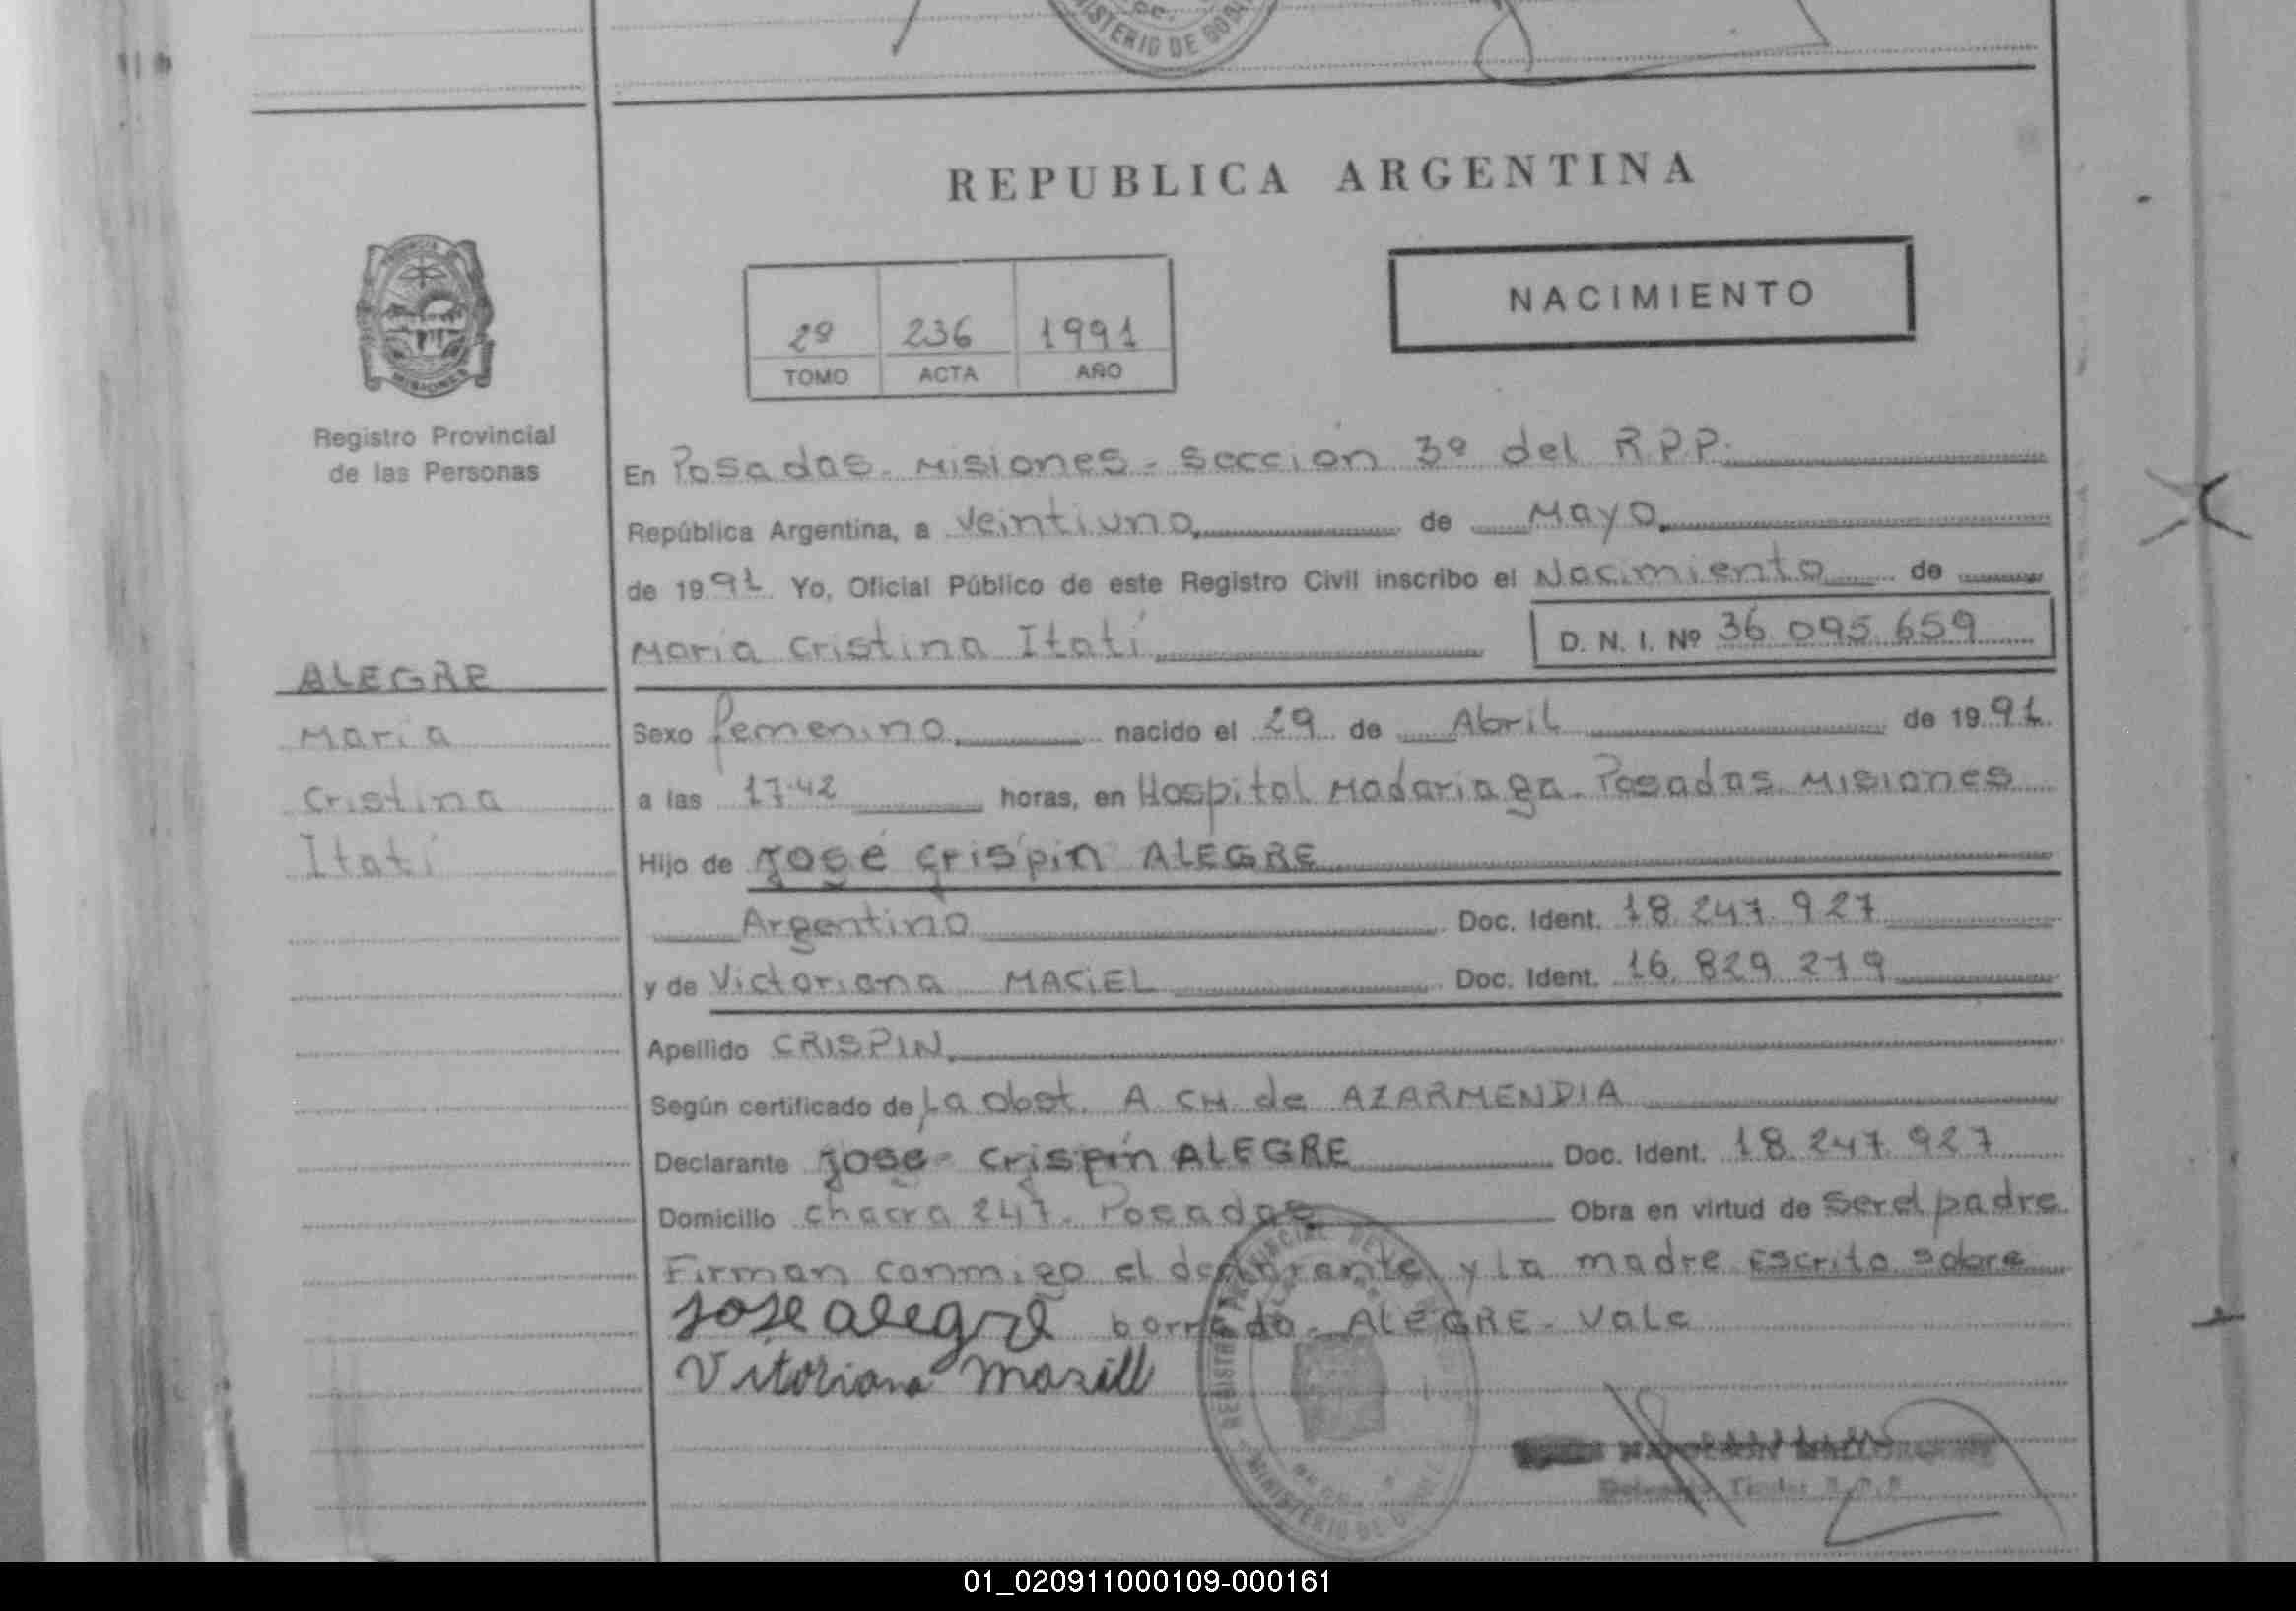 MINISTERIO DE GOB
REPUBLICA ARGENTINA
NACIMIENTO
2º 236 1991
TOMO ACTA AÑO
MISIONES
Registro Provincial
de las Personas
En Posadas. Misiones. Sección 3º del R.P.P.
República Argentina, a Veintiuno de Mayo
de 1991 Yo, Oficial Público de este Registro Civil inscribo el Nacimiento de
María Cristina Itatí D. N. I. Nº 36.095.659
ALEGRE
María
Cristina
Itatí
Sexo femenino nacido el 29 de Abril de 1991
a las 17.42 horas, en Hospital Madariaga. Posadas. Misiones
Hijo de José Crispín ALEGRE
Argentino Doc. Ident. 18.247.927
y de Victoriana MACIEL Doc. Ident. 16.829.219
Apellido CRISPIN
Según certificado de La obst. A CH de AZARMENDIA
Declarante José Crispín ALEGRE Doc. Ident. 18.247.927
Domicilio chacra 247. Posadas Obra en virtud de ser el padre
Firman conmigo el declarante y la madre Escrito sobre
Jose alegre borrado. ALEGRE. Vale
Vitoriana Masill
REGISTRO PROVINCIAL DE LAS
MINISTERIO DE GOB
Titular R.P.P
01_020911000109-000161